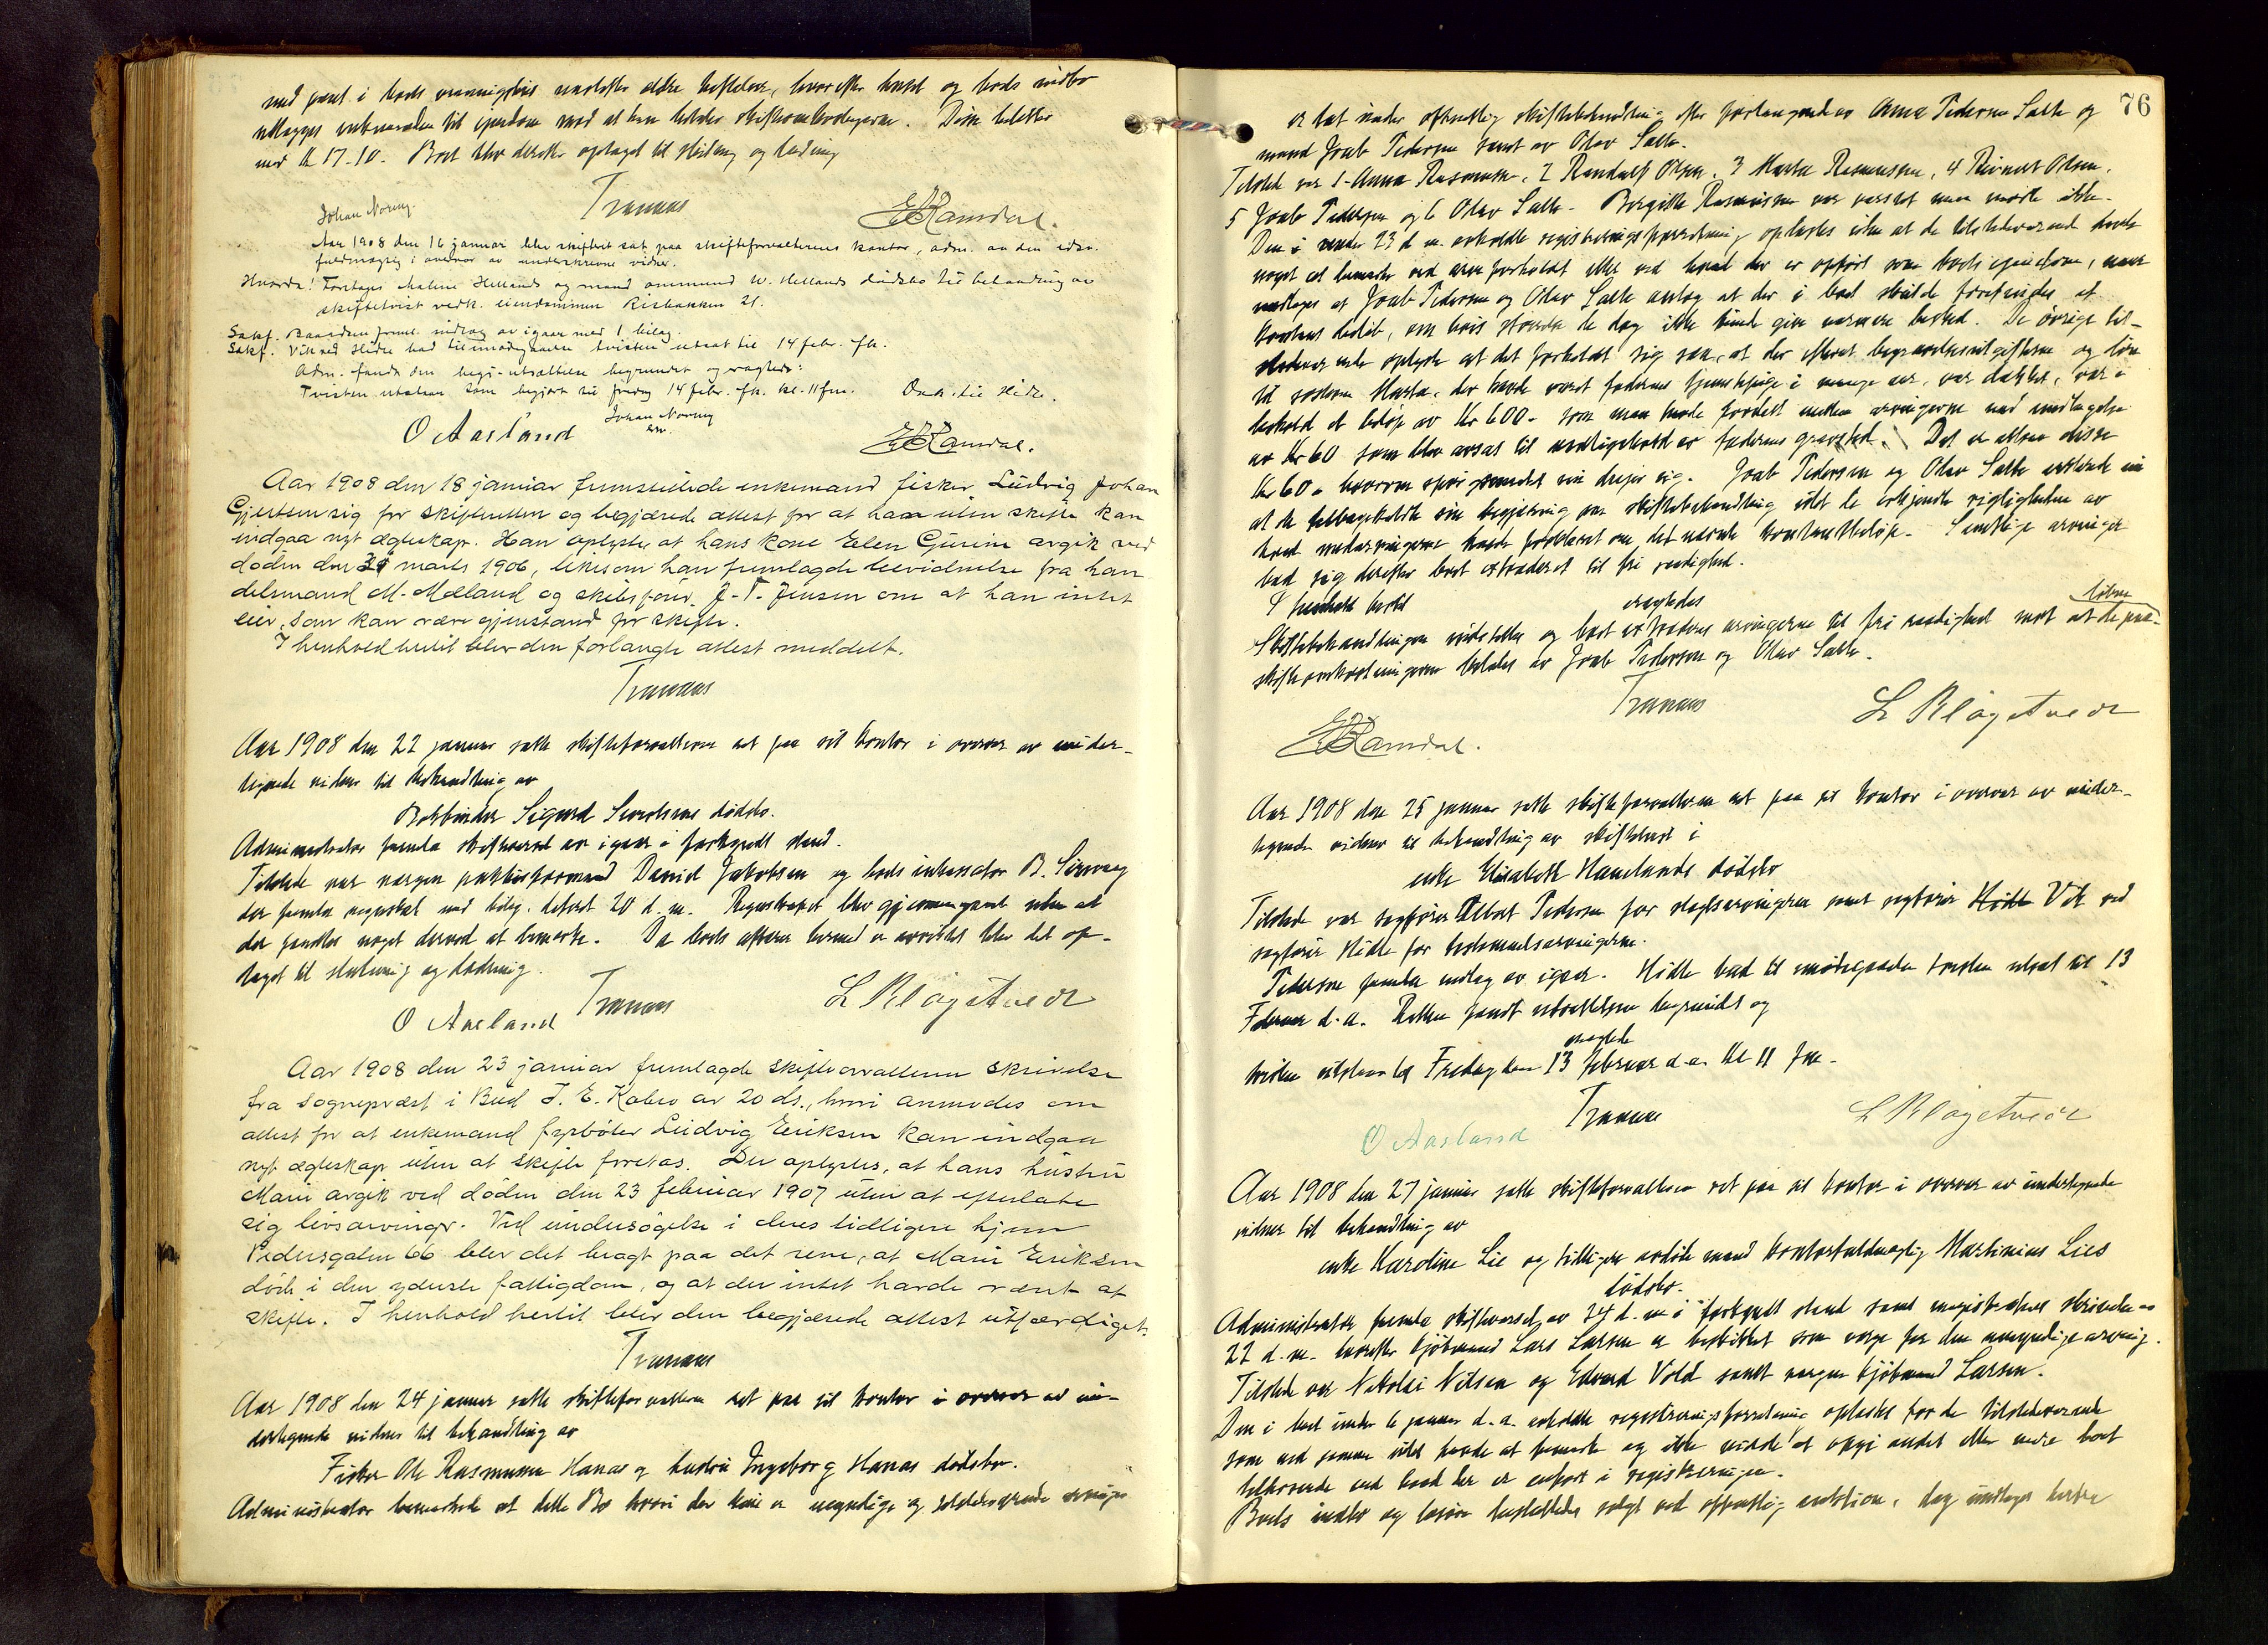 med pant i boets
utlægges til eiendom mod at han betaler skifteomkostningerne. Disse
med kr 17.10. Boet blev derefter optaget til slutning og
Johan Noreng.
Tranaas
E Ramdal.
Aar 1908 den 16 januar blev skifteret sat paa skifteforvalterens kontor, adm. av den edsv.
fuldmægtig i overvær av underskrevne vidner.
Hvorda! Foretages Malene Hellands og mand ommund W. Hellands dødsbo til behandling av
skiftetvist vedk. eiendommen Risbakken 21.
Sakf. indlæg av igaar med 1 bilag.
Sakf. Vik ved Hidle bad til imødegaaelse tvisten utsat til 14 febr. fk.
Adm. fandt den begj. utsættelse begrundet og vagtede:
Tvisten utstaar som begjært til fredag 14 febr. fk. kl. 11 fm.
O Aasland
Johan Noreng
E Ramdal.
Aar 1908 den 18 januar fremstillede enkemand fisker Ludvig Johan
Gjertsen sig for skifteretten og begjærede attest for at han uten skifte kan
indgaa nyt ægteskap. Han oplyste at hans kone Elen Gurine avgik ved
døden den 31 marts 1906, likesom han fremlagde bevidnelse fra han
delsmand M. Mæland og skibsfører J. T. Jensen om at han intet
eier, som kan være gjenstand for skifte.
I henhold hertil blev den forlangte attest meddelt.
Tranaas
Aar 1908 den 22 januar satte skifteforvalteren ret paa sit kontor i overvær av under-
tegnede vidner til behandling av
Bokbinder Sigurd dødsbo.
Administrator fremla skiftevarsel av igaar i forkyndt stand.
Tilstede var vergen David Jakobsen og boets inkassator B.
der fremla regnskab med bilag, datert 20 d. m. Regnskapet blev gjennemgaaet uten at
der fandtes noget derved at bemerke. Da boets affærer hermed er avviklet blev det op-
taget til slutning og
O Aasland
Tranaas
L Kløgetvedt
Aar 1908 den 23 januar fremlagde skifteforvalteren skrivelse
fra sogneprest i Bud J. E. Kobro av 20 ds., hvori anmodes om
attest for at enkemand fyrbøter Ludvig Eriksen kan indgaa
nyt ægteskap uten at skifte foretas. Der oplystes, at hans hustru
Marie avgik ved døden den 23 februar 1907 uten at efterlate
sig livsarvinger. Ved undersøgelse i deres tidligere hjem
Pedersgaten 66 blev det bragt paa det rene, at Marie Eriksen
døde i den yderste fattigdom, og at der intet havde været at
skifte. I henhold hertil blev den begjærede attest utfærdiget.
Tranaas
Aar 1908 den 24 januar satte skifteforvalteren ret paa sit kontor i overvær av un-
dertegnede vidner til behandling av
Fisker Ole Rasmussen Hanas og hustru Ingeborg Hanas dødsbo.
Administrator bemerkede at dette Bo hvori der kun er myndige og selvskiftende arvinger
76
er tat under offentlig skiftebehandling efter forlangende av Anna Pedersen Salte og
mand Joab Pedersen samt av Olav Salte.
Tilstede var 1. Anna Rasmussen, 2 Randulf Olsen, 3 Marta Rasmussen, 4 Reinert Olsen,
5 Joab Pedersen og 6 Olav Salte. Birgitte Rasmussen var varslet men møtte ikke.
Den i under 23 d. m. avholdte registreringsforretning oplæstes uten at de tilstedeværende havde
noget at bemerke ved arveforholdet eller ved hvad der er opført som boets eiendom, naar
undtages at Joab Pedersen og Olav Salte antog at der i boet skulde forefindes et
kontant beløb, om hvis størrelse de dog ikke kunde give nærmere besked. De øvrige til-
stedeværende oplyste at det forholdt sig saa, at der efterat begravelsesutgifterne og løn
til søsteren Marta, der havde været faderens tjenestepige i mange aar, var dækket, var i
behold et beløp av Kr 600. som man havde fordelt mellem arvingerne med undtagelse
av Kr 60 som blev avsat til vedligehold av faderens gravsted. Det er altsaa disse
Kr 60. hvorom spørsmaalet nu dreier sig. Joab Pedersen og Olav Salte erklærede nu
at de tilbakeholdt sin begjæring om skiftebehandling idet de erkjendte rigtigheten av
hvad medarvingerne havde forklaret om det nævnte kontantbeløp. Samtlige arvinger
bad sig derefter boet extraderet til fri raadighed.
I henhold hertil
vagtedes
Skiftebehandlingen indstilles og boet extraderes arvingerne til fri raadighed mot at de paa-
løbne
skifteomkostningerne betales av Joab Pedersen og Olav Salte.
Tranaas
L Kløgetvedt
E Ramdal.
Aar 1908 den 25 januar satte skifteforvalteren ret paa sit kontor i overvær av under-
tegnede vidner til behandling av skiftetvist i
enke Elisabeth Hauelands dødsbo
Tilstede var sagfører Albert Pedersen for slegtsarvingerne samt sagfører Hidle Vik ved
sagfører Hidle for testamentsarvingerne.
Pedersen fremla indlæg av igaar. Hidle bad til imødegaaelse tvisten utsat til 13
Februar d. a. Retten fandt utsættelsen begrundet og
vagtede
tvisten utstaar til Fredag den 13 februar d. a. kl 11 fm.
Tranaas
L Kløgetvedt
O Aasland
Aar 1908 den 27 januar satte skifteforvalteren ret paa sit kontor i overvær av undertegnede
vidner til behandling av
enke Karoline Lie og tidligere avdøde mand kontorfuldmægtig Martinius Lies
dødsbo.
Administrator fremla skiftevarsel av 24 d. m. i forkyndt stand samt magistratens skrivelse av
22 d. m. hvorefter kjøbmand Lars Larsen er beskikket som verge for den umyndige arving.
Tilstede var Nikolai Nilsen og Edvard Vold samt vergen kjøbmand Larsen.
Den i boet under 6 januar d. a. avholdte registreringsforretning oplæstes for de tilstedeværende
som ved samme intet havde at bemerke og ikke vidste at opgi andet eller mere boet
tilhørende end hvad der er anført i registreringen.
Boets indbo og løsøre besluttedes solgt ved offentlig auktion, dog undtages herfra